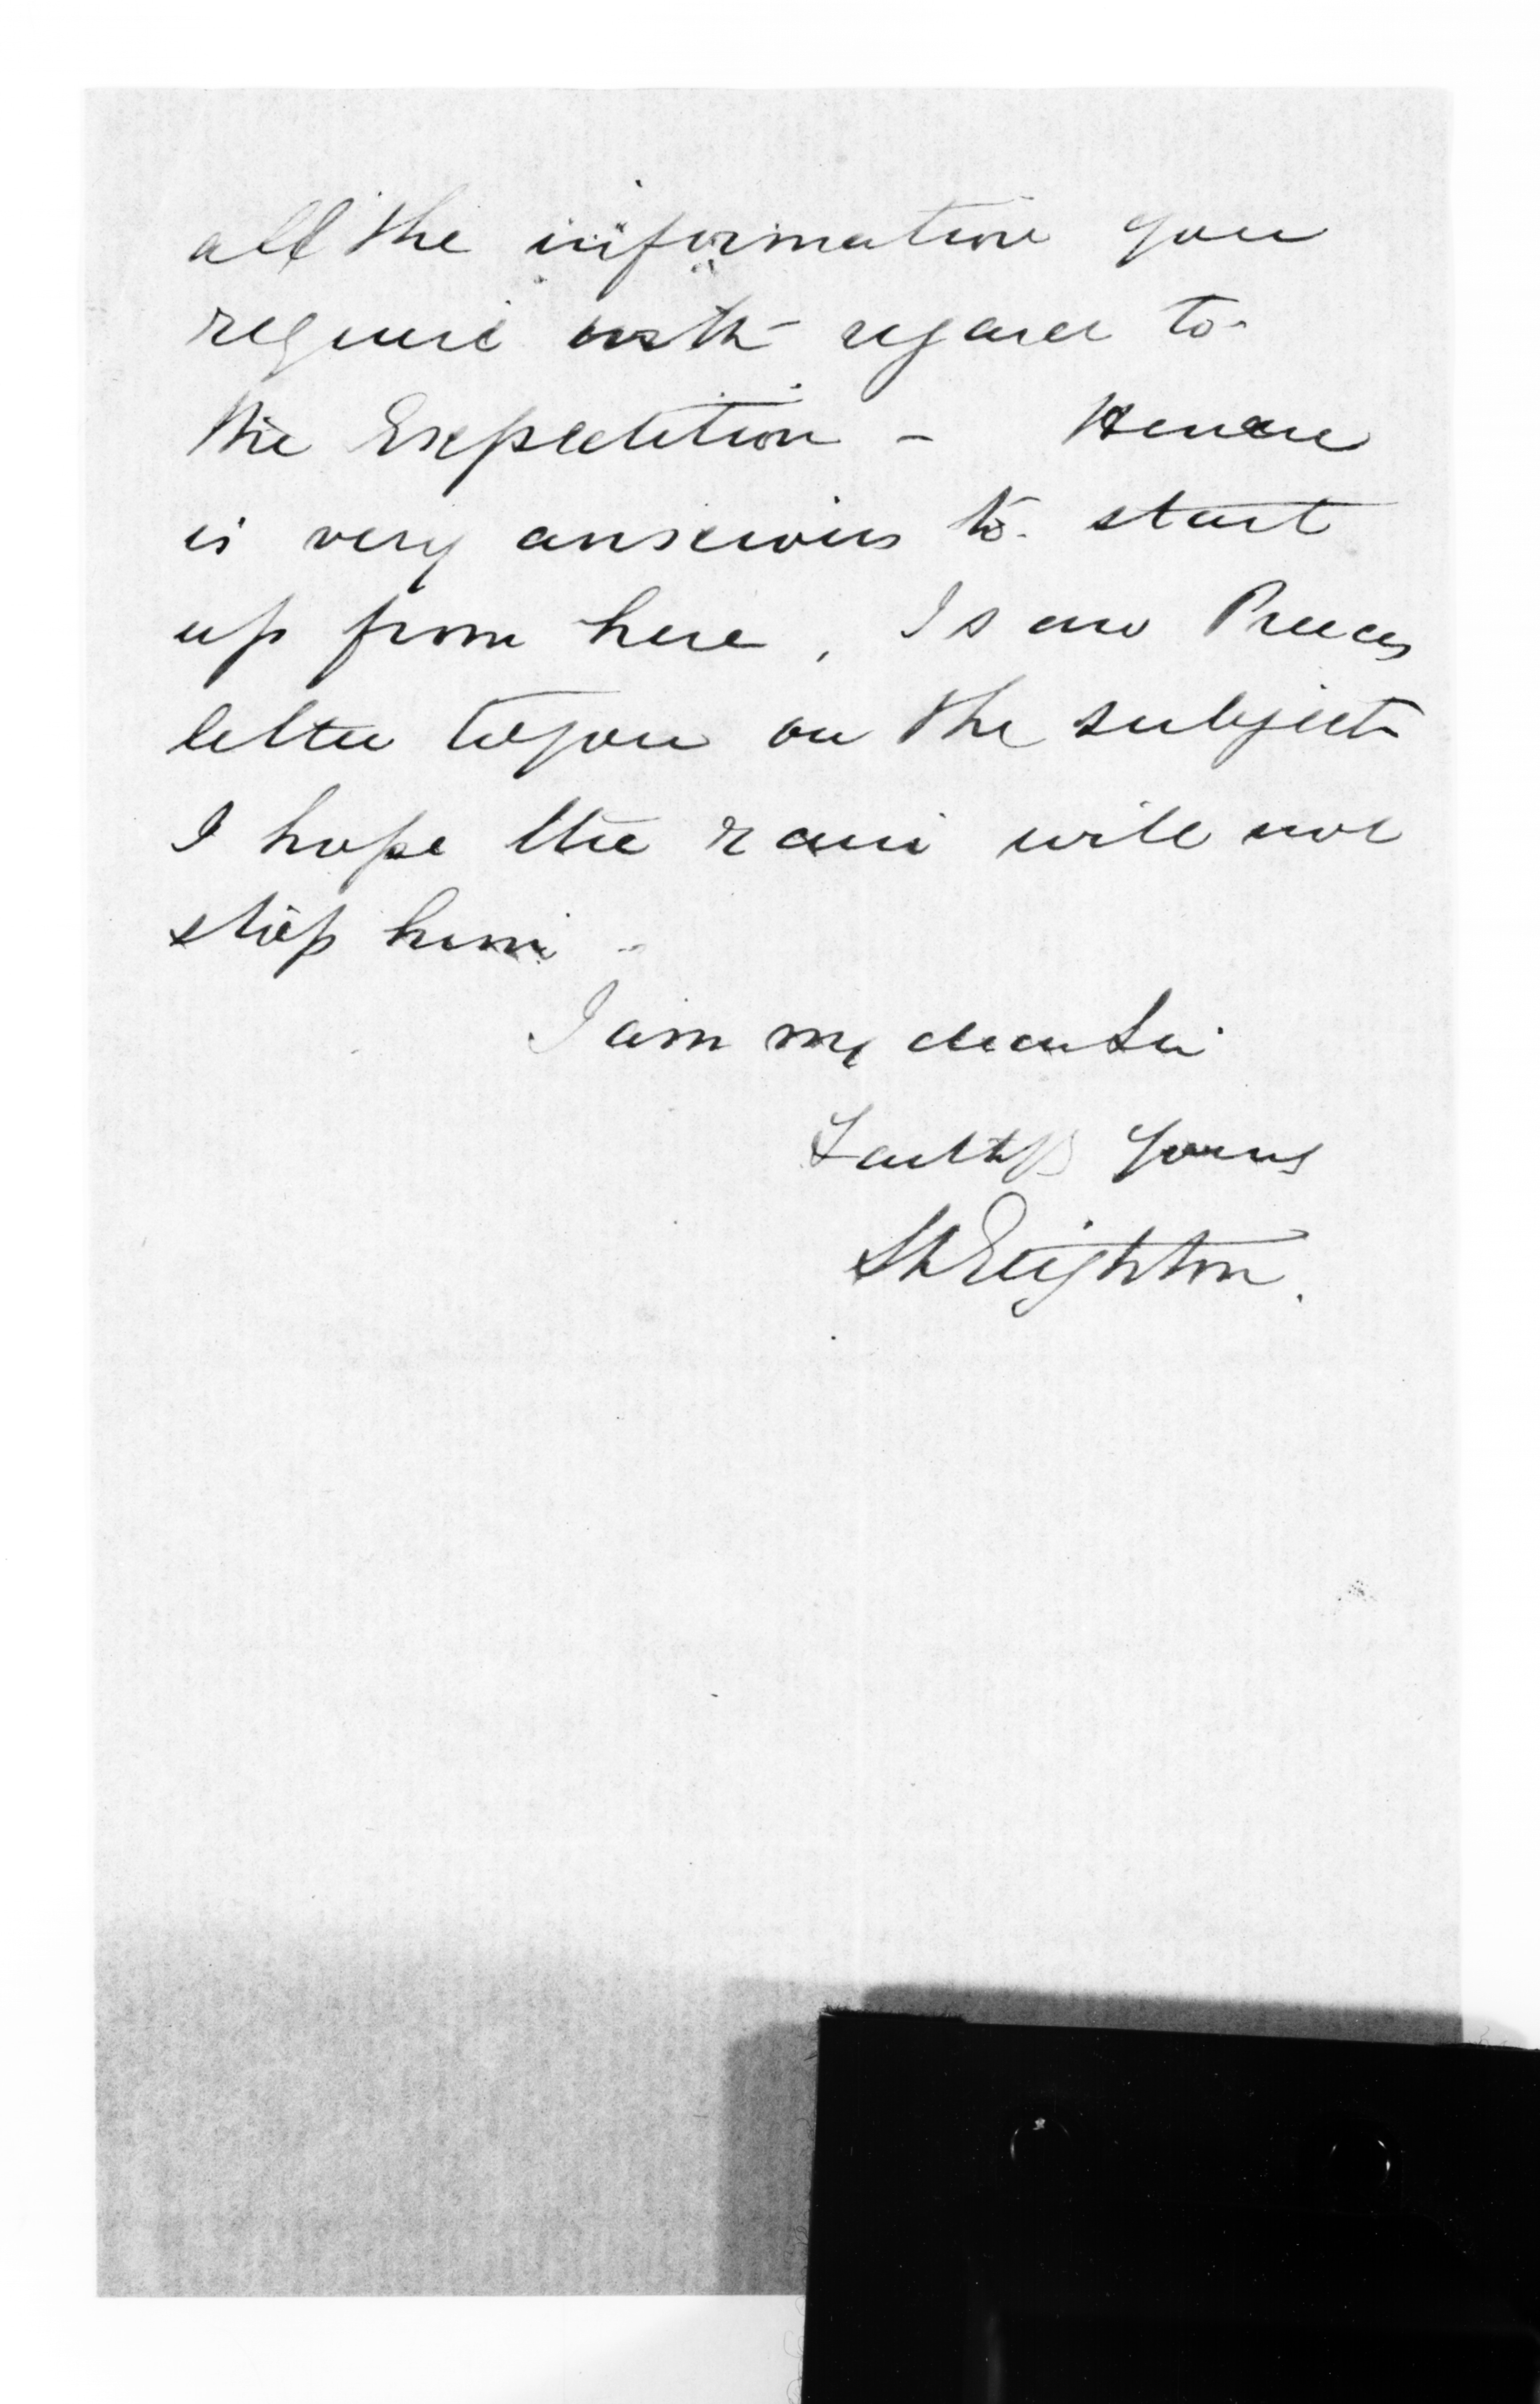 all the information you
require with regard to
the Expedition -
is very anxious to start
up from here, I saw Preeces
letter to you on the subject
I hope the rain will not
stop him -
I am my dear Sir
Faithfy Yours
Deighton.